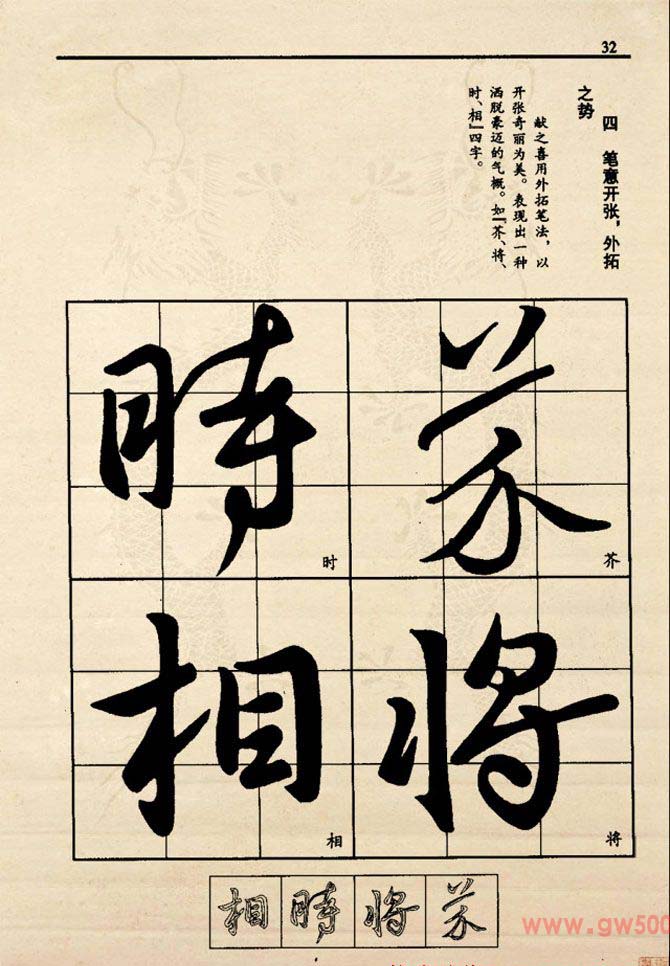 32
四　笔意开张，外拓
之势
献之喜用外拓笔法，以
开张奇丽为美。表现出一种
洒脱豪迈的气概。如『芥、将、
时、相』四字。
芥
芥
将
将
時
时
相
相
相時将芥
www.gw500